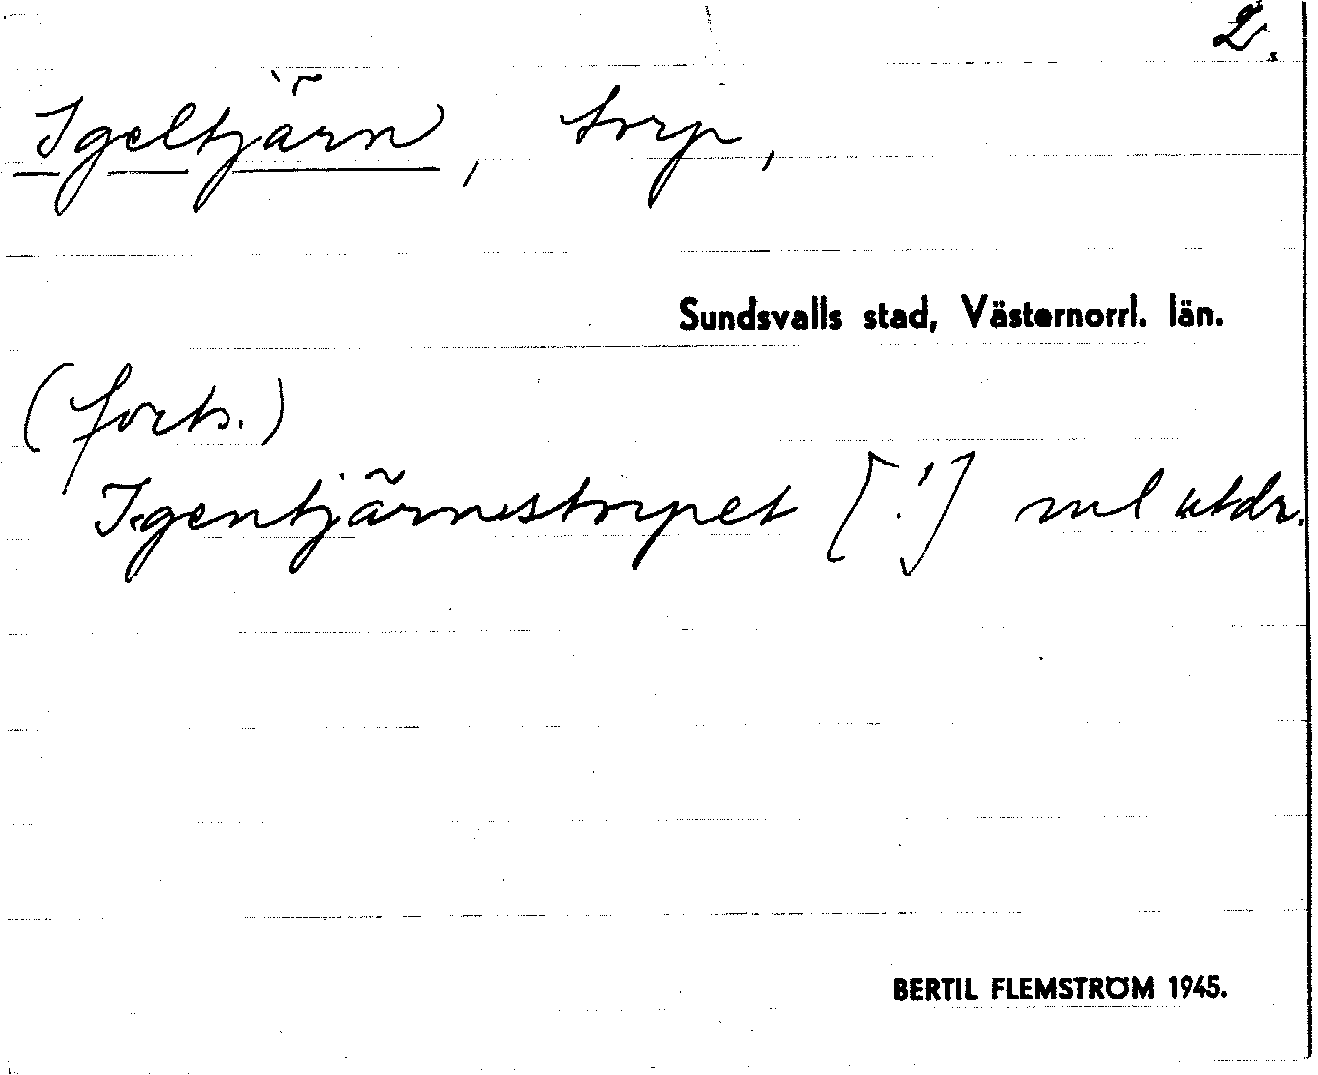 2.
Igeltjärn, torp,
Sundsvalls stad, Västernorrl. län.
(forts.)
Igentjärnstorpet [!] enl utdr.
BERTIL FLEMSTRÖM 1945.